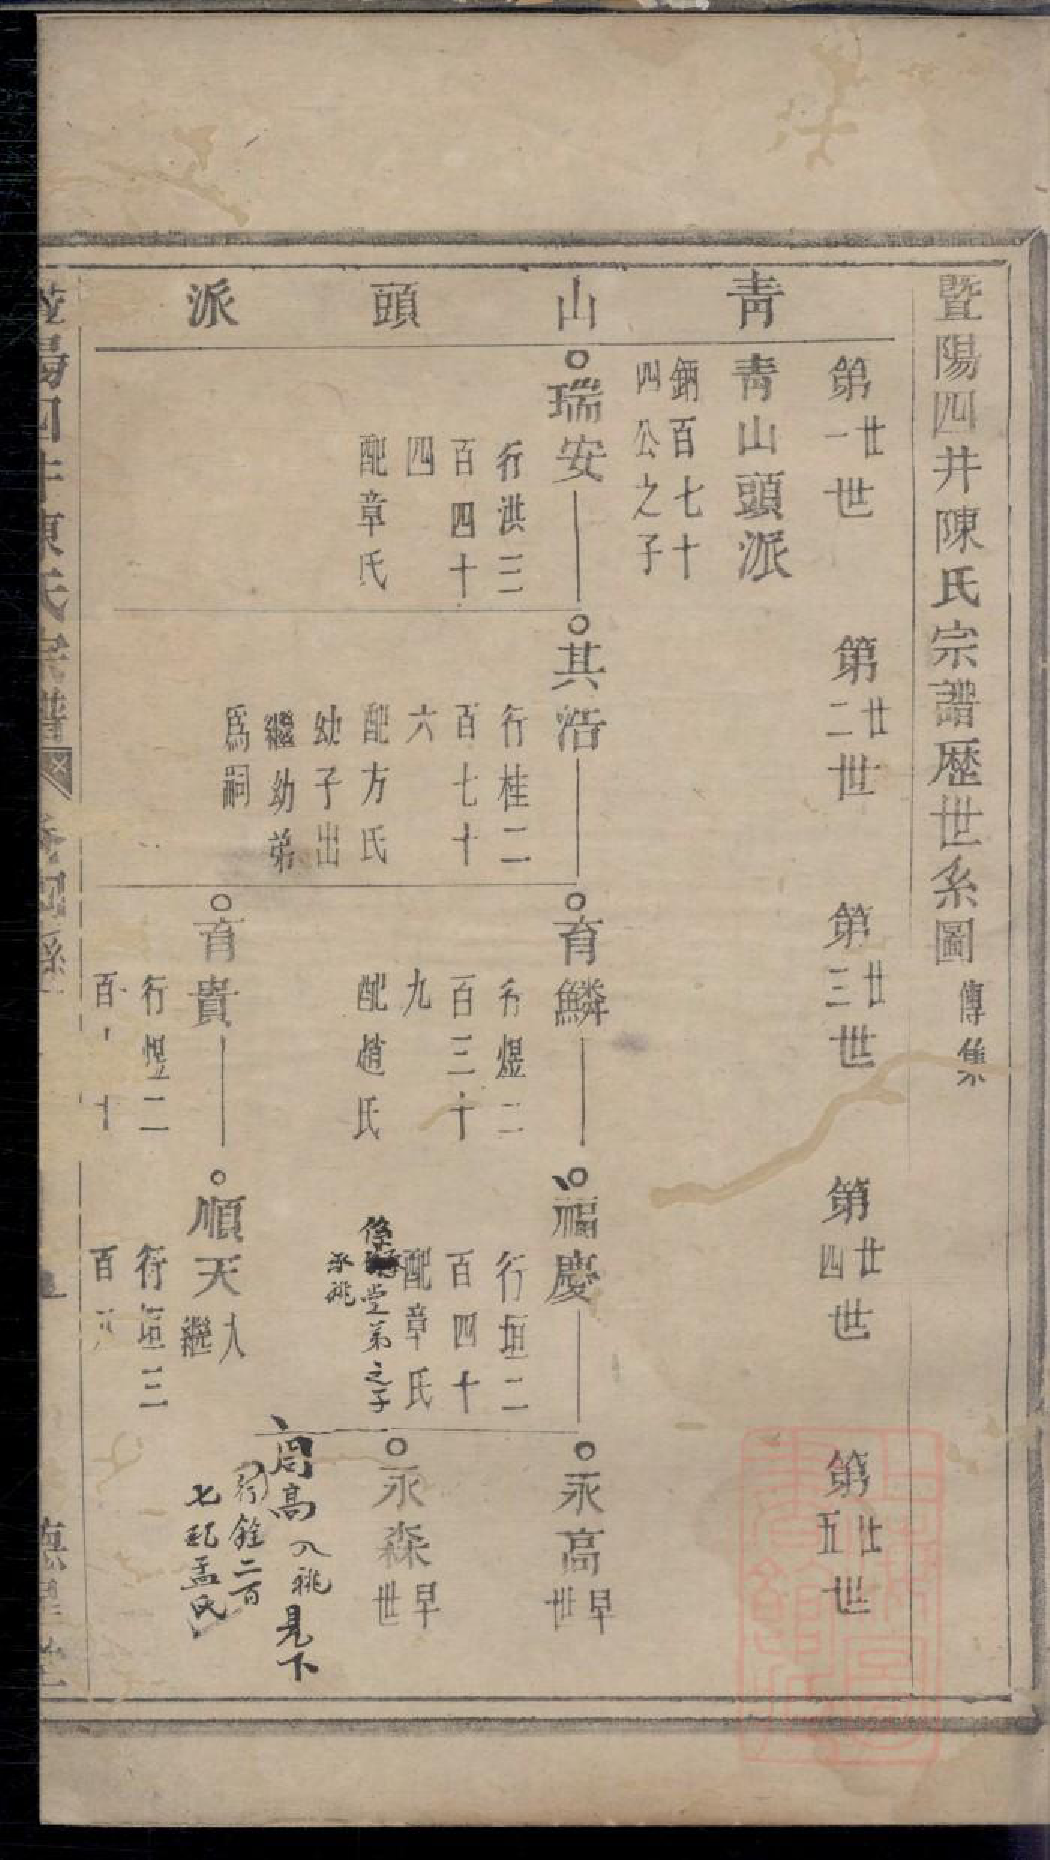 暨陽四井陳氏宗譜歷世系圖 傳集
青山頭派
第廿一世
第廿二世
第廿三世
第廿四世
第廿五世
青山頭派
鈵百七十
四公之子
瑞安
行洪三
百四十
四
配章氏
其浩
行桂二
百七十
六
配方氏
幼子出
繼幼弟
爲嗣
育鱗
行煜二
百三十
九
配趙氏
福慶
行垣二
百四十
配章氏
堂弟之子
承祧
永高
早世
永森
早世
周高入祧見下
行銓二百
七配孟氏
育貴
行煜二
百
十
順天
入繼
行垣三
百
暨陽四井陳氏宗譜